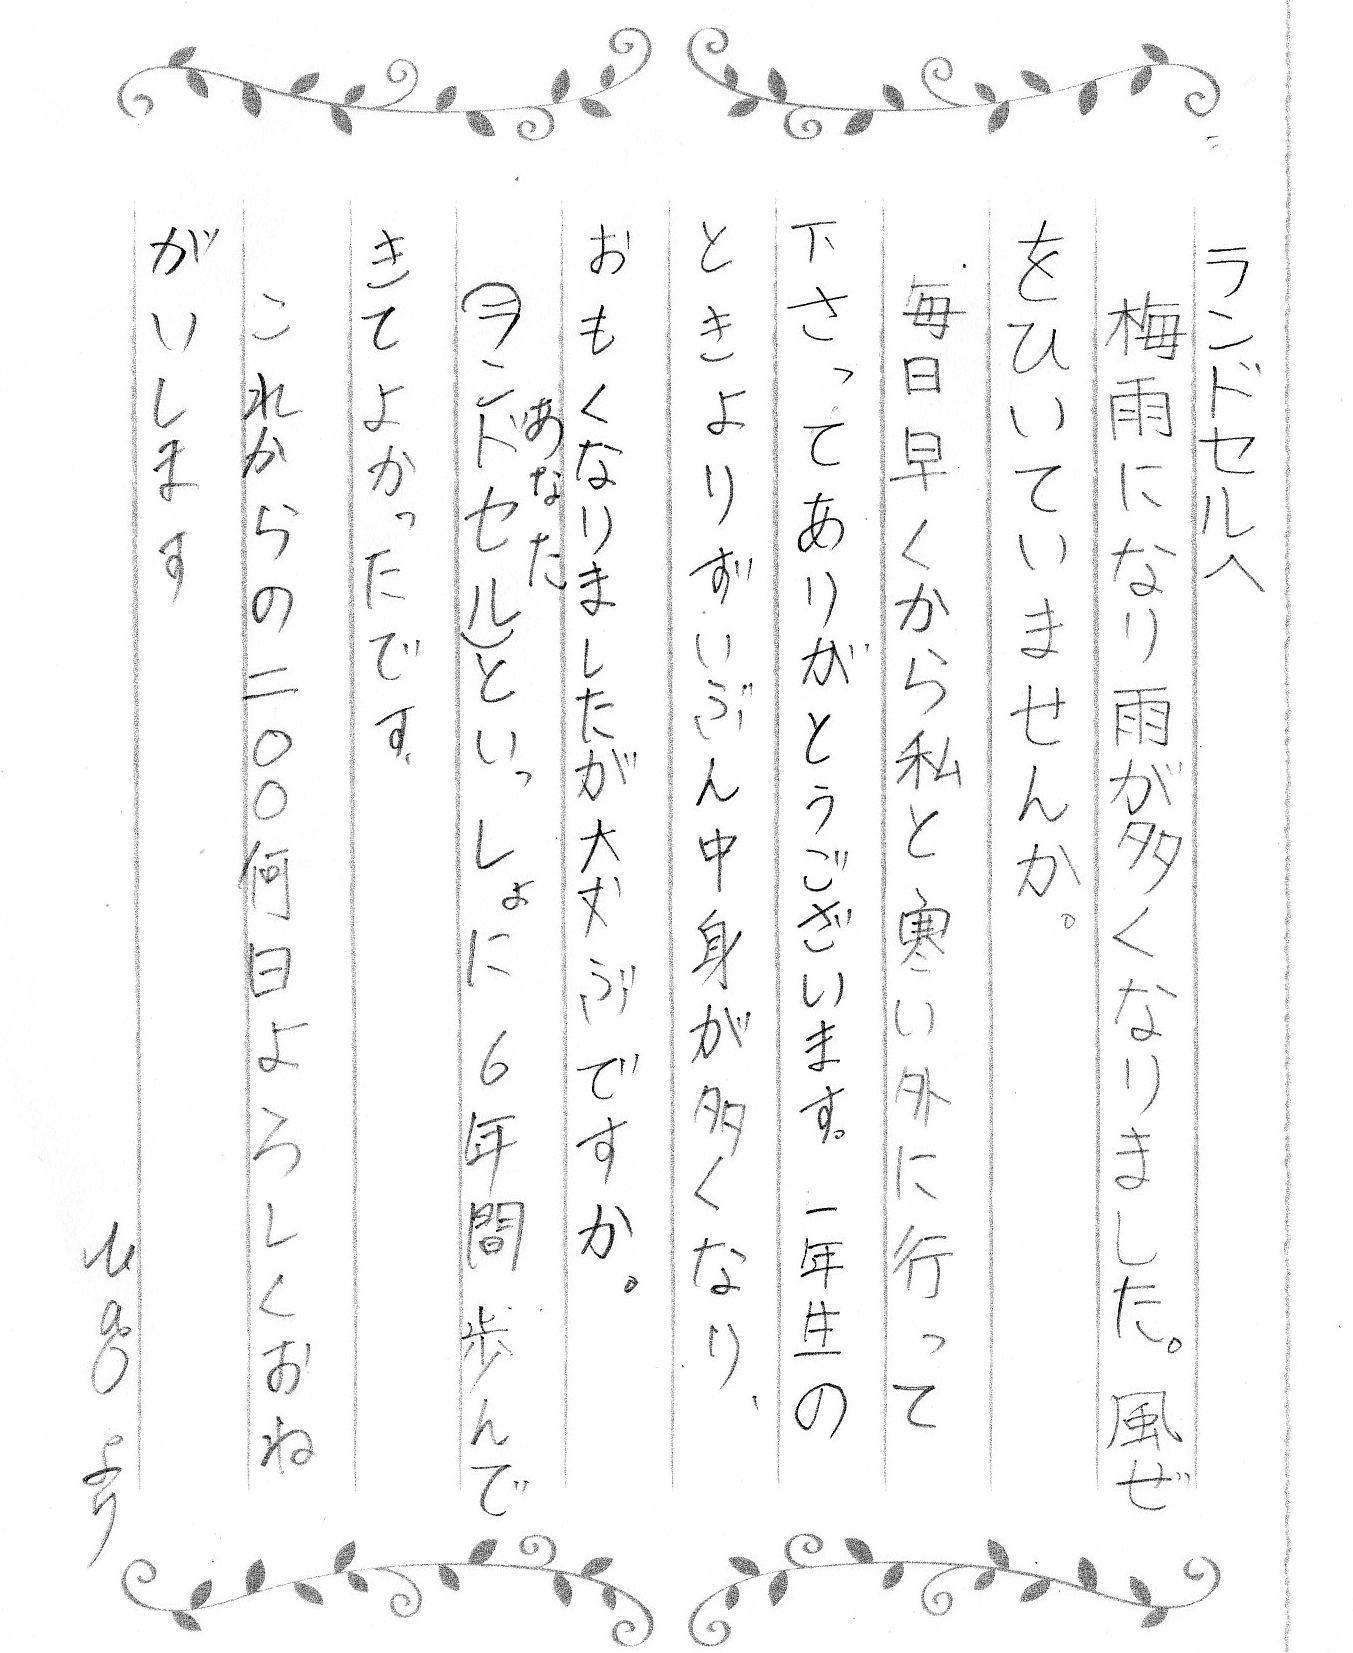 ランドセルへ
梅雨になり雨が多くなりました。風ぜ
をひいていませんか。
毎日早くから私と寒い外に行って
下さってありがとうございます。一年生の
ときよりずいぶん中身が多くなり、
おもくなりましたが大丈ぶですか。
あなた
(ランドセル)といっしょに6年間歩んで
きてよかったです。
これからの二〇〇何日よろしくおね
がいします
より